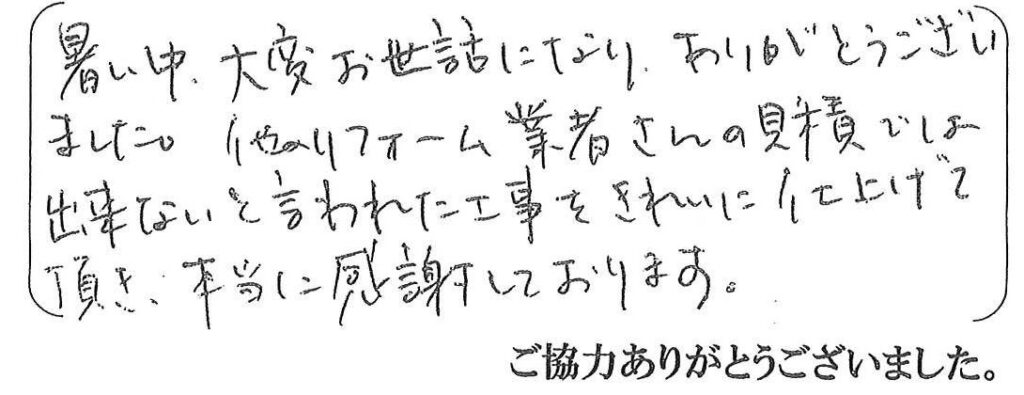 暑い中、大変お世話になり、ありがとうござい
ました。他のリフォーム業者さんの見積では
出来ないと言われた工事をきれいに仕上げて
頂き、本当に感謝しております。
ご協力ありがとうございました。